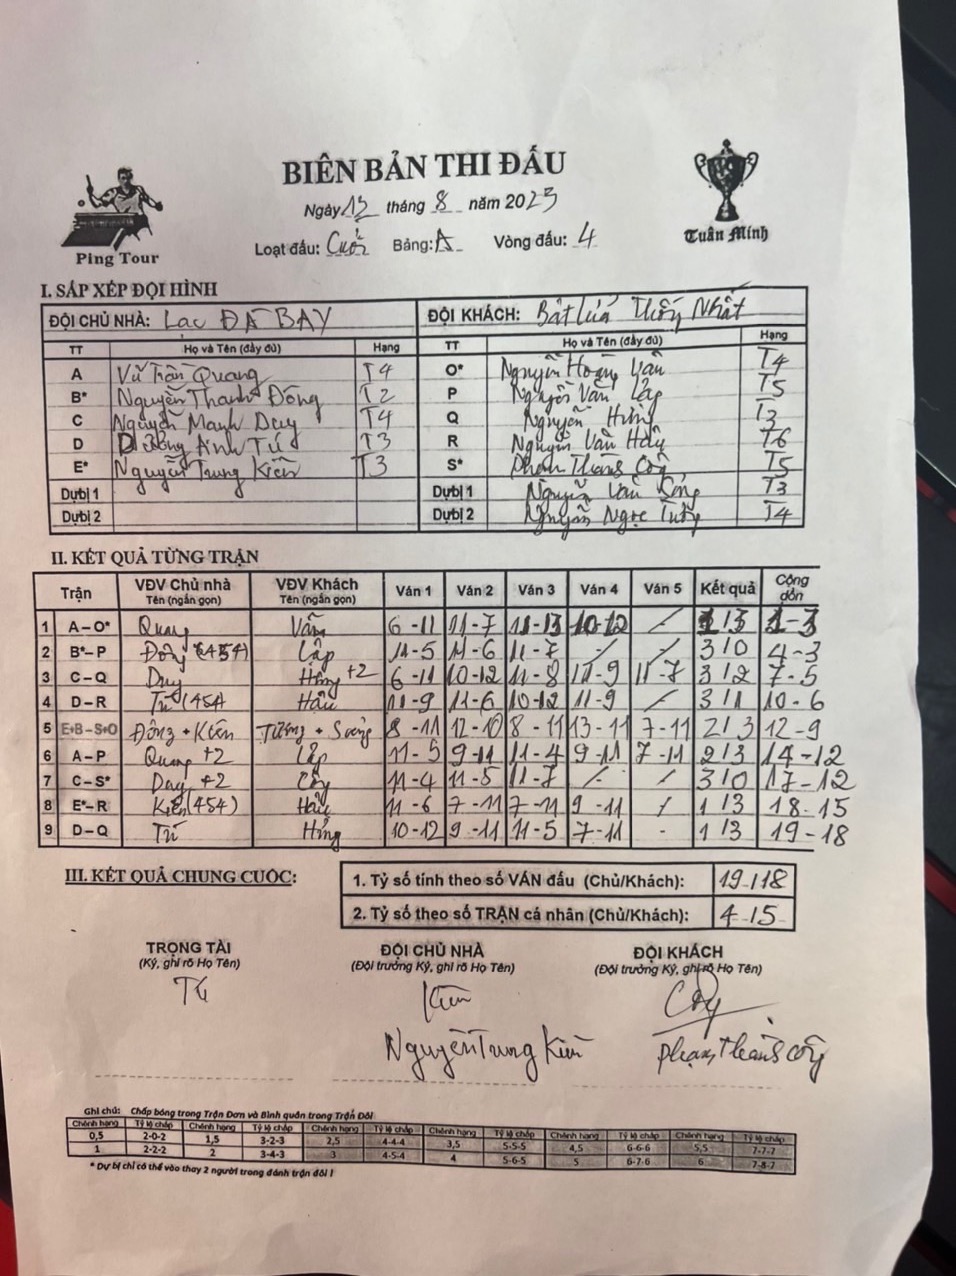 BIÊN BẢN THI ĐẤU
Ping Tour
Tuấn Minh
Ngày 13 tháng 8 năm 2023
Loạt đấu: Cuối Bảng: A Vòng đấu: 4
I. SẮP XẾP ĐỘI HÌNH
ĐỘI CHỦ NHÀ: Lạc ĐÀ BAY ĐỘI KHÁCH: Bát Lúa Thống Nhất
TT Họ và Tên (đầy đủ) Hạng TT Họ và Tên (đầy đủ) Hạng
A Vũ Trần Quang T4 O* Nguyễn Hoàng T4
B* Nguyễn Thanh Đông T2 P Nguyễn Văn Lập T5
C Nguyễn Mạnh Duy T4 Q Nguyễn Hưng T3
D Dương Anh Tú T3 R Nguyễn Văn Hậu T6
E* Nguyễn Trung Kiên T3 S* Phạm Thành T5
Dự bị 1 Dự bị 1 Nguyễn Văn T3
Dự bị 2 Dự bị 2 Nguyễn Ngọc T4
II. KẾT QUẢ TỪNG TRẬN
Trận VĐV Chủ nhà Tên (ngắn gọn) VĐV Khách Tên (ngắn gọn) Ván 1 Ván 2 Ván 3 Ván 4 Ván 5 Kết quả Cộng dồn
1 A – O* Quang 6-11 11-7 11-13 10-12 / 1/3 1-3
2 B* – P Đông (454) Lập 11-5 11-6 11-7 / / 3/0 4-3
3 C – Q Duy Hưng +2 6-11 10-12 11-8 11-9 11-7 3/2 7-5
4 D – R Tú (454) Hậu 11-9 11-6 10-12 11-9 / 3/1 10-6
5 E+B – S+O Đông + Kiên 8-11 12-10 8-11 13-11 7-11 2/3 12-9
6 A – P Quang +2 Lập 11-5 9-11 11-4 9-11 7-11 2/3 14-12
7 C – S* Duy +2 11-4 11-5 11-7 / / 3/0 17-12
8 E* – R Kiên (454) Hậu 11-6 7-11 7-11 9-11 / 1/3 18-15
9 D – Q Tú Hưng 10-12 9-11 11-5 7-11 - 1/3 19-18
III. KẾT QUẢ CHUNG CUỘC:
1. Tỷ số tính theo số VÁN đấu (Chủ/Khách): 19/18
2. Tỷ số theo số TRẬN cá nhân (Chủ/Khách): 4/5
TRỌNG TÀI ĐỘI CHỦ NHÀ ĐỘI KHÁCH
(Ký, ghi rõ Họ Tên) (Đội trưởng Ký, ghi rõ Họ Tên) (Đội trưởng Ký, ghi rõ Họ Tên)
Tú Kiên
Nguyễn Trung Kiên Phạm Thành
Ghi chú: Chấp bóng trong Trận Đơn và Bình quân trong Trận Đôi
Chênh hạng Tỷ lệ chấp Chênh hạng Tỷ lệ chấp Chênh hạng Tỷ lệ chấp Chênh hạng Tỷ lệ chấp Chênh hạng Tỷ lệ chấp Chênh hạng Tỷ lệ chấp
0,5 2-0-2 1,5 3-2-3 2,5 4-4-4 3,5 5-5-5 4,5 6-6-6 5,5 7-7-7
1 2-2-2 2 3-4-3 3 4-5-4 4 5-6-5 5 6-7-6 6 7-8-7
* Dự bị chỉ có thể vào thay 2 người trong đánh trận đôi !